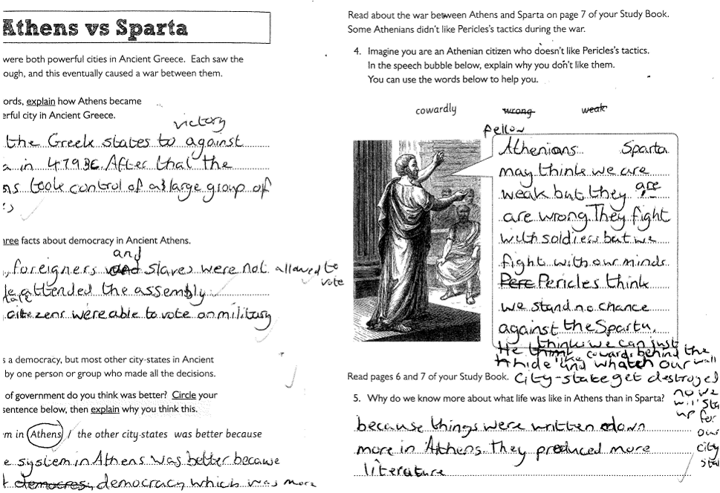 Athens vs Sparta
were both powerful cities in Ancient Greece. Each saw the
ough, and this eventually caused a war between them.
ords, explain how Athens became
erful city in Ancient Greece.
victory
the Greek states to against
in 479BC. After that the
ns took control of a large group of
ree facts about democracy in Ancient Athens.
and
foreigners slaves were not allowed to
vote
attended the assembly
male
citizens were able to vote on military
s a democracy, but most other city-states in Ancient
by one person or group who made all the decisions.
of government do you think was better? Circle your
sentence below, then explain why you think this.
m in Athens / the other city-states was better because
e system in Athens was better because
democresy democracy which was more
Read about the war between Athens and Sparta on page 7 of your Study Book.
Some Athenians didn't like Pericles's tactics during the war.
4. Imagine you are an Athenian citizen who doesn't like Pericles's tactics.
In the speech bubble below, explain why you don't like them.
You can use the words below to help you.
cowardly wrong weak
fellow
Athenians Sparta
may think we are
weak but they are
are wrong. They fight
with soldiers but we
fight with our minds
Pere Pericles think
we stand no chance
against the Sparta.
He thinks we can just
hide like cowards behind the wall
and whatch our
city-state get destroyed
no we
will sta
up for
our
city
sta
Read pages 6 and 7 of your Study Book.
5. Why do we know more about what life was like in Athens than in Sparta?
because things were written down
more in Athens. They produced more
literature